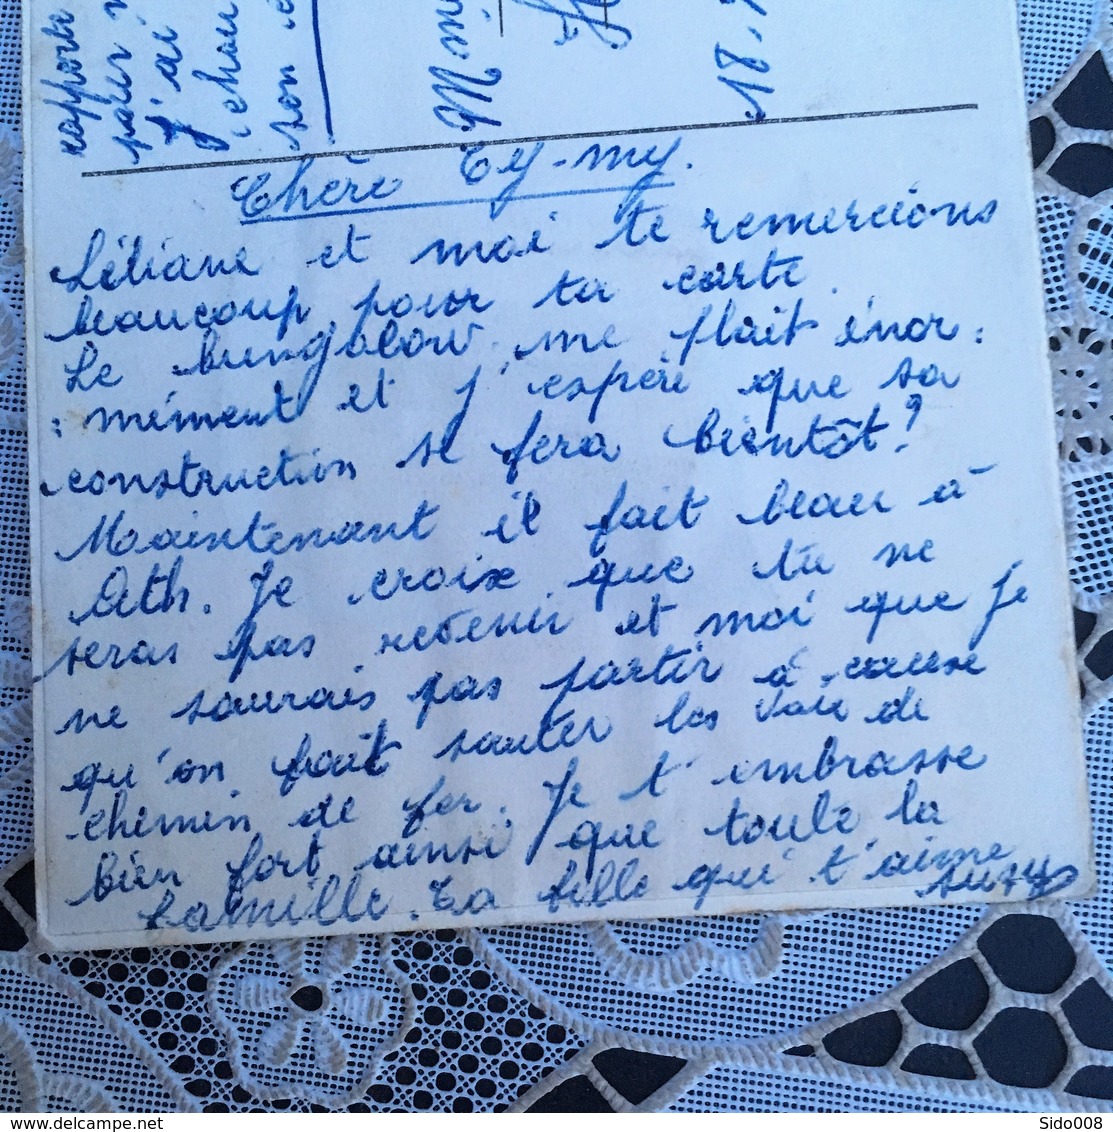 rapporte
pour
j'ai
chau
son
Mme
18.
Chère Ty-my.
Liliane et moi te remercions
beaucoup pour ta carte.
Le bungalow me plait énor:
:mément et j'espère que sa
construction se fera bientôt?
Maintenant il fait beau à
Ath. Je croix que tu ne
seras pas retenir et moi que je
ne saurais pas partir à cause
qu'on fait sauter les voie de
chemin de fer. Je t'embrasse
bien fort ainsi que toute la
famille. Ta fille qui t'aime
Suzy
Sido008